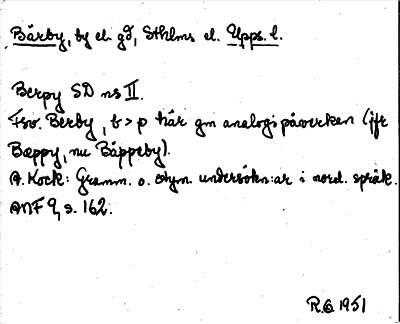 Bärby, by el. gd, Sthlms el. Upps. l.
Berpy SD ns II.
Fsv. Berby, b > p här gm analogipåverkan (jfr
Bæppy, nu Bäppeby).
A. Kock: Gramm. o. etym. undersökn:ar i nord. språk.
ANF 9, s. 162.
R.G. 1951